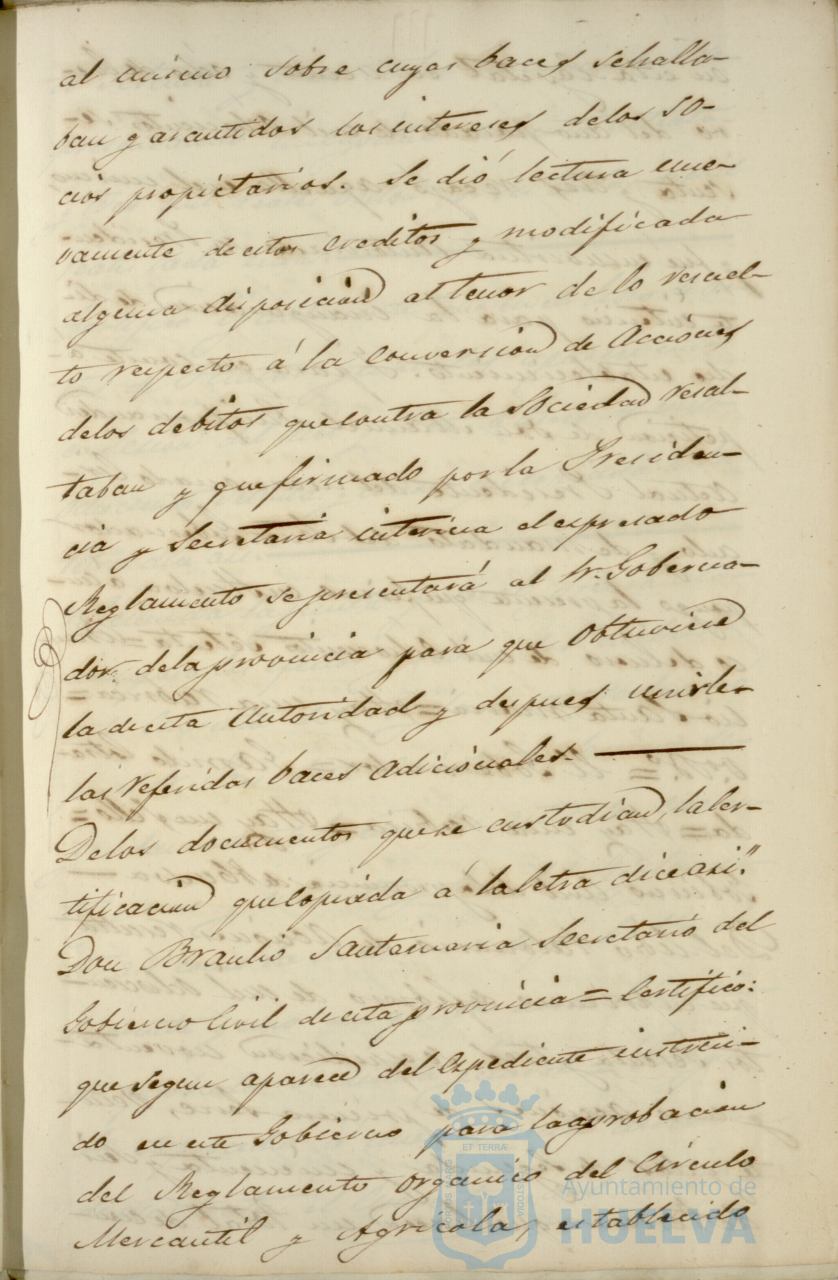 al mismo sobre cuyas baces sehalla-
ban garantidos los intereses delos so-
cios propietarios. Se dió lectura nue-
vamente de estos creditos y modificada
alguna disposicion al tenor de lo resuel-
to respecto á la conversion de Acciones
delos debitos que contra la Sociedad resal-
taban y que firmado por la Presiden-
cia y Secretaria interina el espresado
Reglamento se presentará al Sr. Goberna-
dor dela provincia para que obtuviese
la de esta Autoridad y despues unirle
las referidas baces adicionales.
Delos documentos que se custodian, la cer-
tificacion que copiada á la letra dice asi:"
Don Braulio Santamaria Secretario del
Gobierno Civil de esta provincia = Certifico:
que segun aparece del Expediente instrui-
do en este Gobierno para la aprobacion
del Reglamento organico del Circulo
Mercantil y Agricola, establecido
Ayuntamiento de
HUELVA